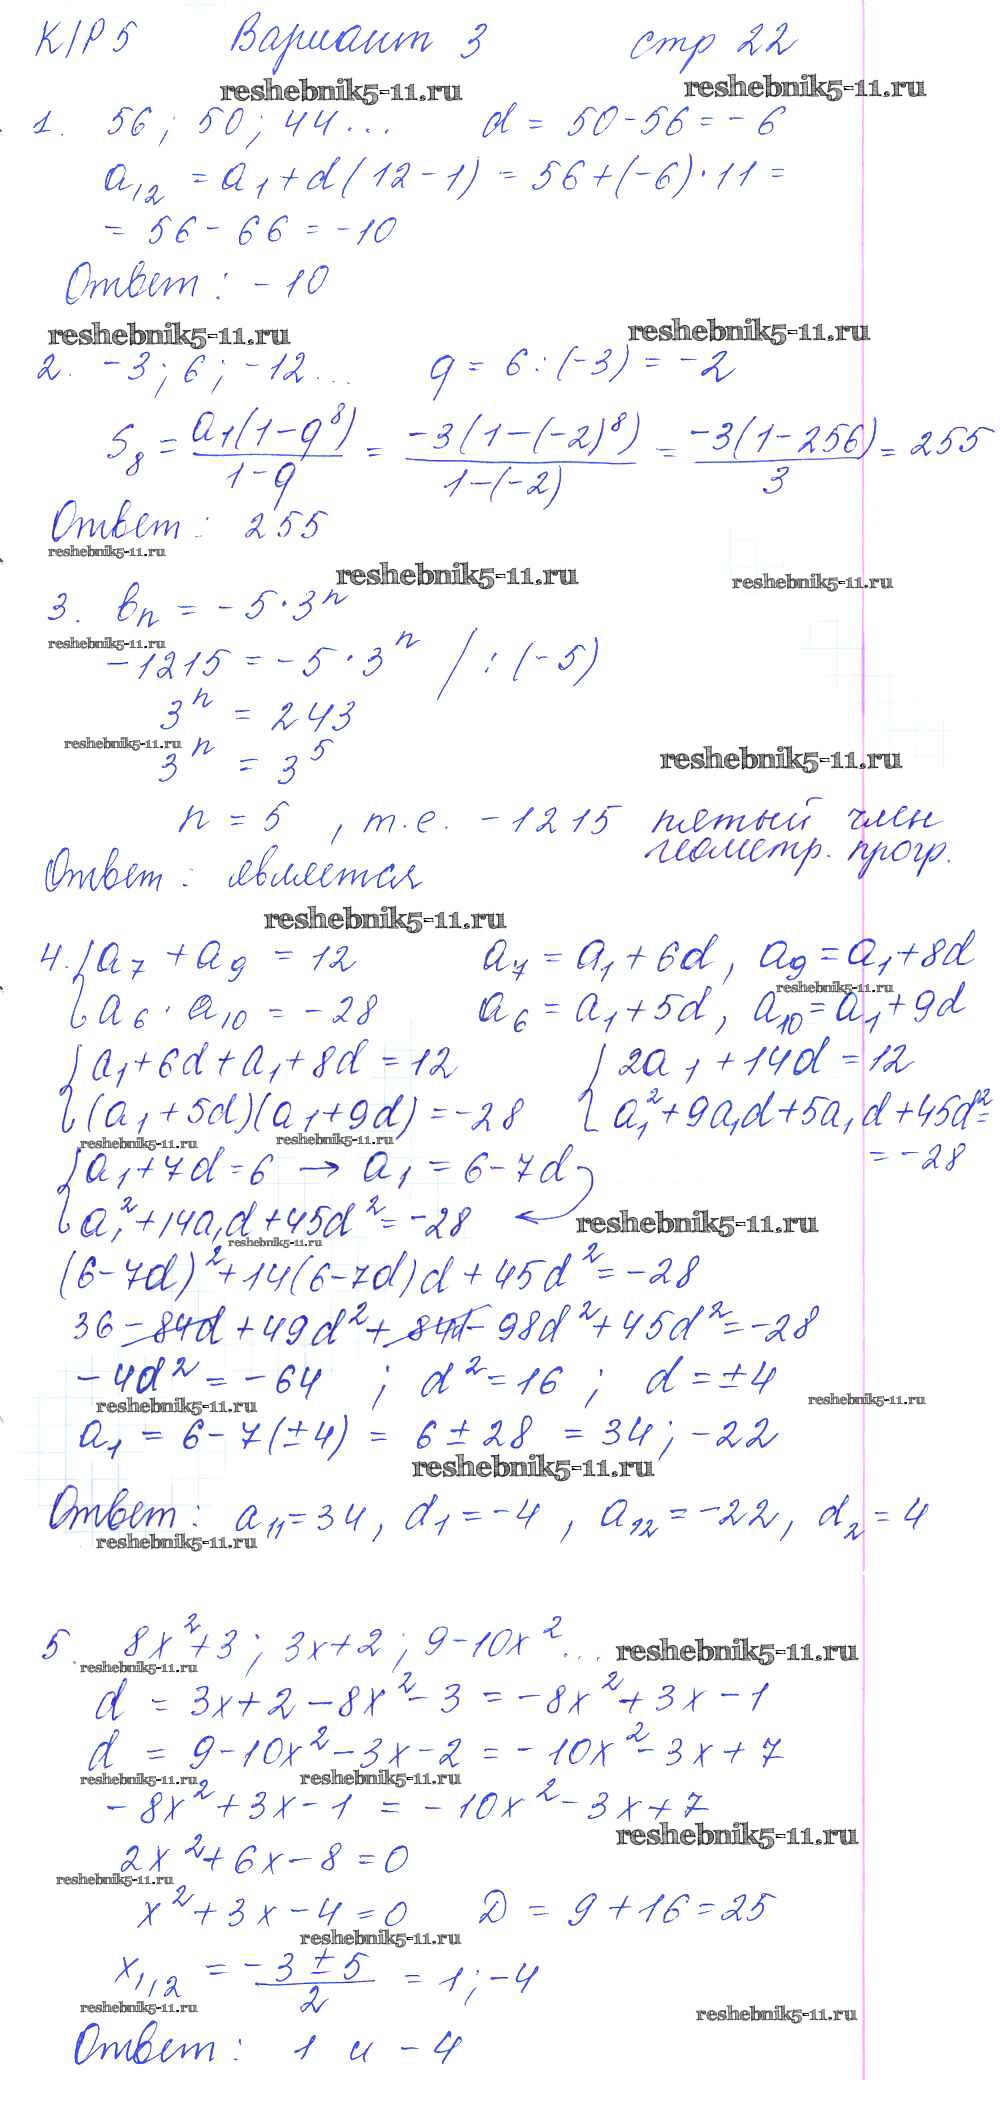 К/Р 5 Вариант 3 стр 22
reshebnik5-11.ru reshebnik5-11.ru
1. 56; 50; 44... d = 50-56 = -6
a₁₂ = a₁+d(12-1) = 56+(-6)·11 =
= 56-66 = -10
Ответ: -10
reshebnik5-11.ru reshebnik5-11.ru
2. -3; 6; -12... q = 6:(-3) = -2
S₈ = a₁(1-q⁸)/1-q = -3(1-(-2)⁸)/1-(-2) = -3(1-256)/3 = 255
Ответ: 255
reshebnik5-11.ru
reshebnik5-11.ru reshebnik5-11.ru
3. bₙ = -5·3ⁿ
reshebnik5-11.ru
-1215 = -5·3ⁿ /:(-5)
3ⁿ = 243
reshebnik5-11.ru
3ⁿ = 3⁵ reshebnik5-11.ru
n = 5, т.е. -1215 пятый член
геометр. прогр.
Ответ: является
reshebnik5-11.ru
4. { a₇ + a₉ = 12 a₇ = a₁+6d, a₉ = a₁+8d
reshebnik5-11.ru
{ a₆ · a₁₀ = -28 a₆ = a₁+5d, a₁₀ = a₁+9d
{ a₁+6d+a₁+8d = 12 { 2a₁+14d = 12
{ (a₁+5d)(a₁+9d) = -28 { a₁²+9a₁d+5a₁d+45d² =
reshebnik5-11.ru reshebnik5-11.ru
= -28
{ a₁+7d = 6 → a₁ = 6-7d
{ a₁²+14a₁d+45d² = -28 ← reshebnik5-11.ru
reshebnik5-11.ru
(6-7d)²+14(6-7d)d+45d² = -28
36-84d+49d²+84d-98d²+45d² = -28
-4d² = -64 ; d² = 16 ; d = ±4
reshebnik5-11.ru reshebnik5-11.ru
a₁ = 6-7(±4) = 6±28 = 34; -22
reshebnik5-11.ru
Ответ: a₁₁ = 34, d₁ = -4, a₁₂ = -22, d₂ = 4
reshebnik5-11.ru
5. 8x²+3; 3x+2; 9-10x²... reshebnik5-11.ru
reshebnik5-11.ru
d = 3x+2-8x²-3 = -8x²+3x-1
d = 9-10x²-3x-2 = -10x²-3x+7
reshebnik5-11.ru reshebnik5-11.ru
-8x²+3x-1 = -10x²-3x+7
reshebnik5-11.ru
2x²+6x-8 = 0
reshebnik5-11.ru
x²+3x-4 = 0 D = 9+16 = 25
reshebnik5-11.ru
x₁,₂ = -3±5/2 = 1; -4
reshebnik5-11.ru reshebnik5-11.ru
Ответ: 1 и -4